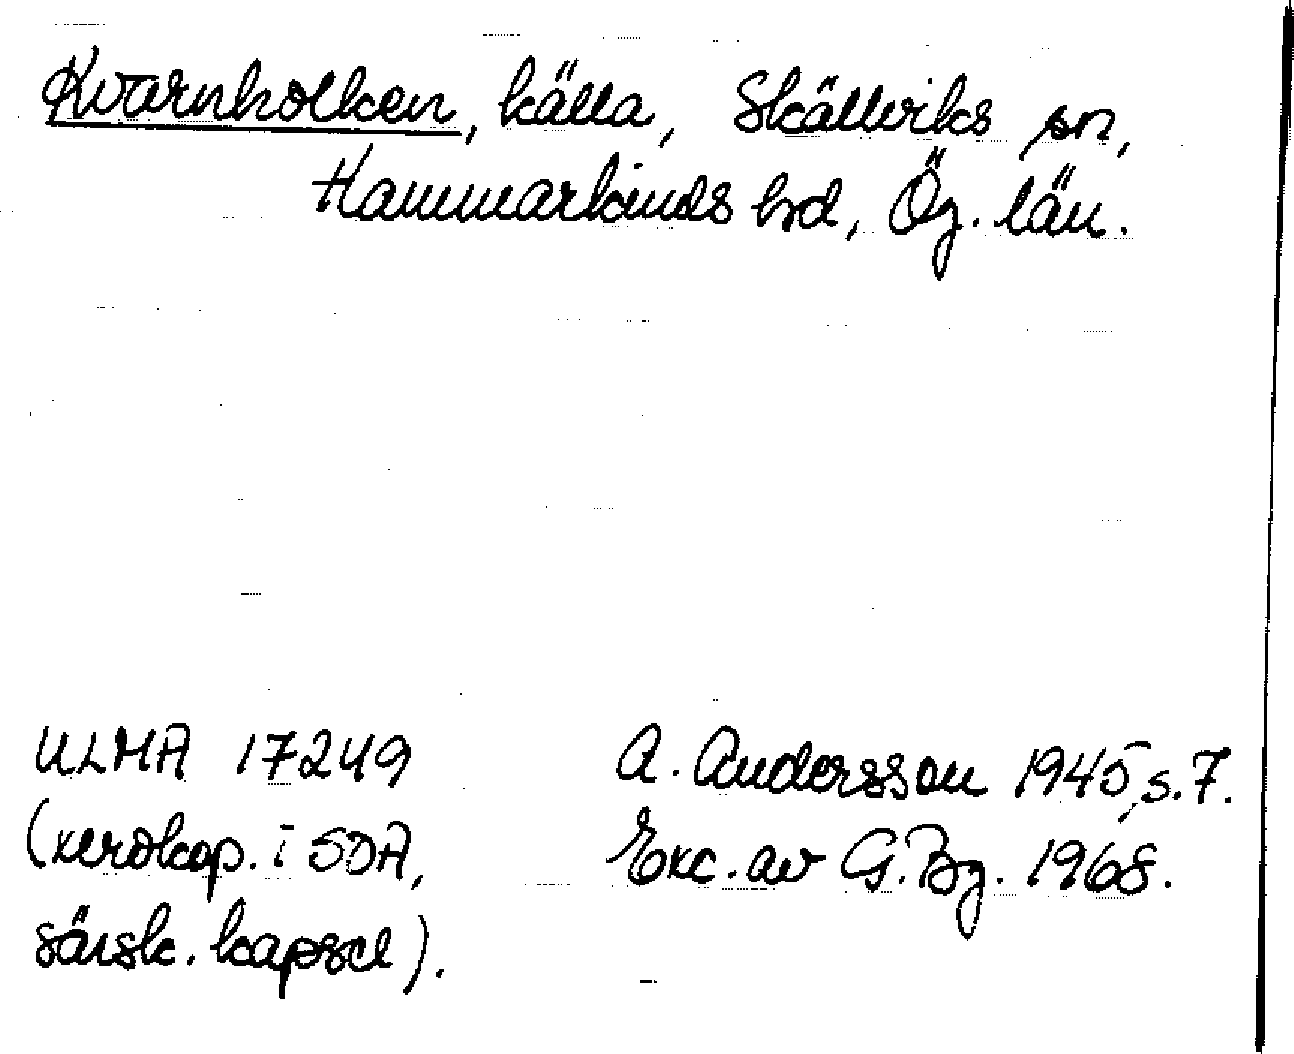 Kvarnholken, källa, Skällviks sn,
Hammarkinds hd, Ög. län.
ULMA 17249
(xerokop. i SOA,
särsk. kapsel).
A. Andersson 1945, s. 7.
Exc. av G. Bg. 1968.